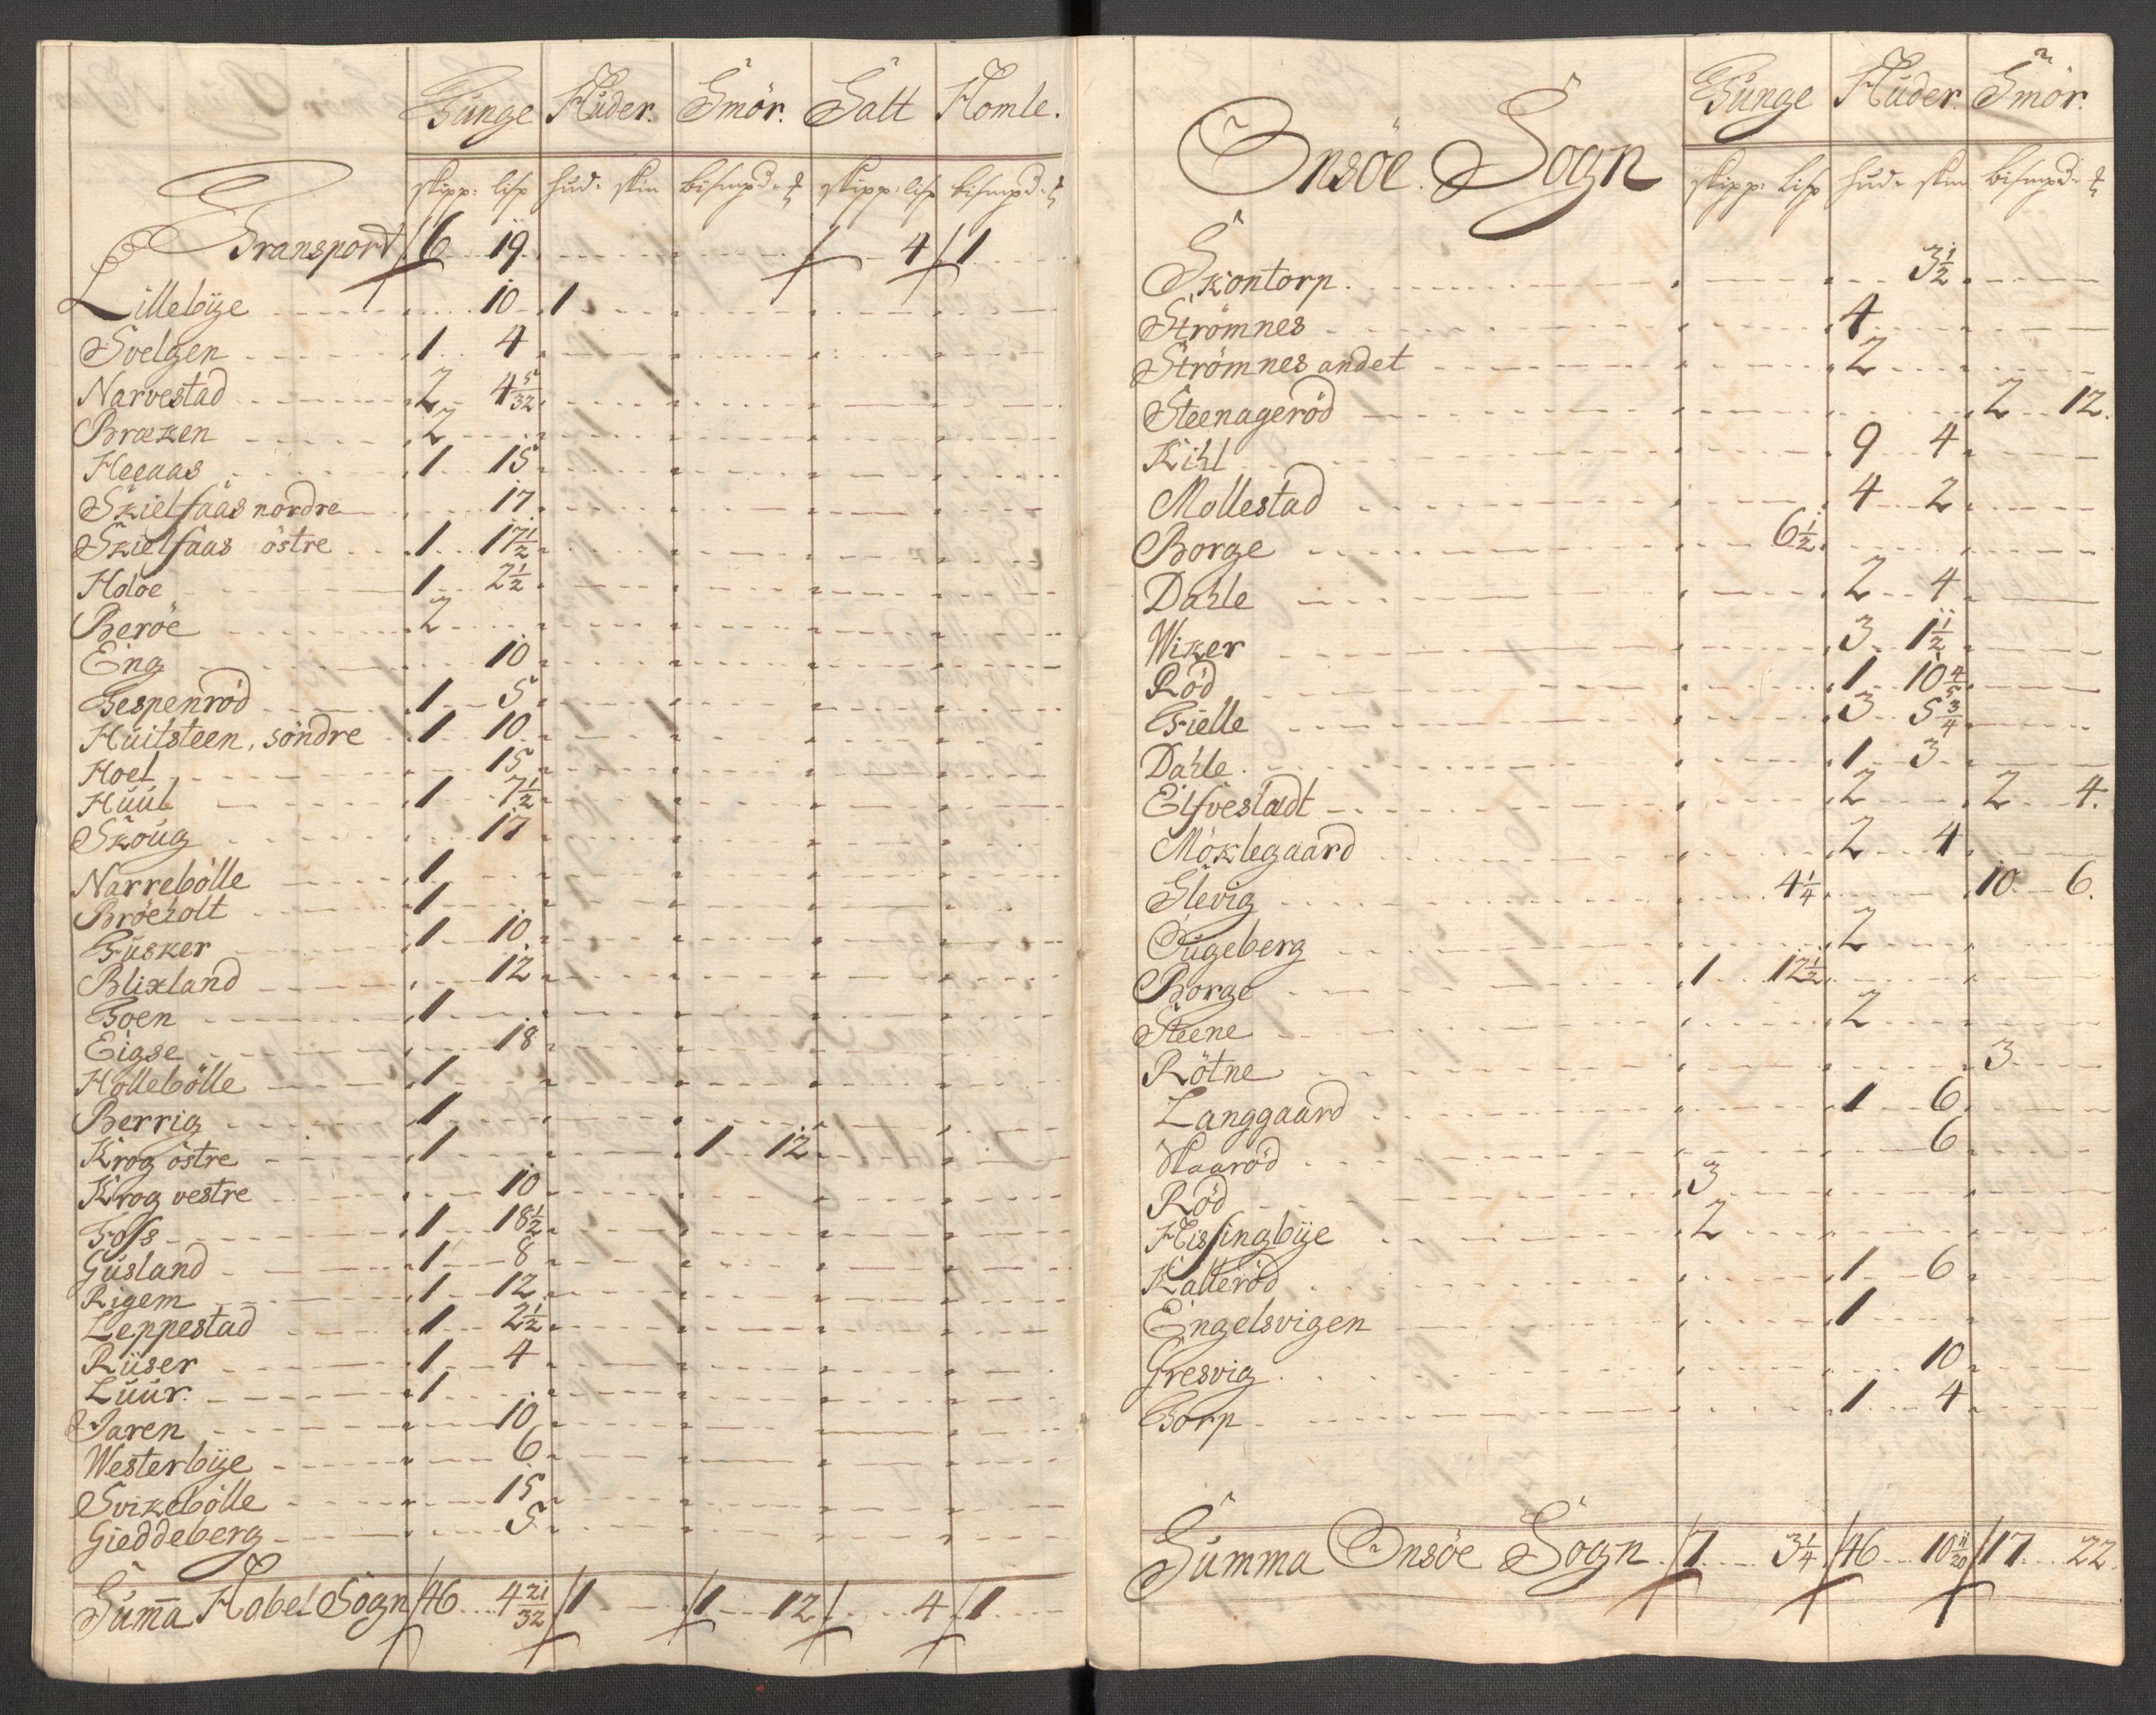 Tunge Huder. Smör. Salt Homle.
skipp: lisp hud. skin bismpd. ℔ skipp: lisp bismpd. ℔
Transport 6 19 4 1
Lillebÿe 10 1
Svelgen 1 4
Narvestad 2 4 5/32
Bræken 2
Heeaas 1 15
Skielfaas nordre 17
Skielfaas östre 1 17 1/2
Holöe 1 2 1/2
Beröe 2
Eng 10
Tespenröd 1 5
Huitsteen, söndre 1 10
Hoel 15
Huul 1 7 1/2
Skoug 17
Narrebölle 1
Bröeholt 1
Fusker 1 10
Blixland 12
Toen 1
Eigse 18
Hollebölle 1
Berrig 1
Krog östre 1 1 12
Krog vestre 10
Foss 1 18 1/2
Gusland 1 8
Rigem 1 12
Leppestad 1 2 1/2
Rüser 1 4
Luur. 1
Jaren 10
Westerbÿe 6
Svikebölle 15
Gieddeberg 5
Sum̄a Hobel Sogn 46 4 21/32 1 1 12 4 1
Onsöe Sogn
Tunge Huder. Smör.
skipp: lisp hud. skin bismpd. ℔
Skontorp. 3 1/2
Strömnes 4
Strömnes andet 2
Steenageröd 2 12.
Kihl 9 4
Mollestad 4 2
Borge 6 1/2
Dahle 2 4
Wiker 3 1 1/2
Röd 1 10 4/5
Fielle 3 5 3/4
Dahle. 1 3
Elfvestadt 2 2 4.
Möklegaard 2 4
Slevig 4 1/4 10 6.
Ougeberg 2
Borge 1 12 1/2
Steene 2
Rötne 3
Langgaard 1 6
Haaröd 6
Röd 3
Hissingbÿe 2
Kalleröd 1 6
Engelsvigen 1
Gresvig. 10
Torp 1 4
Summa Onsöe Sogn. 7 3 1/4 46 10 11/20 17 22.